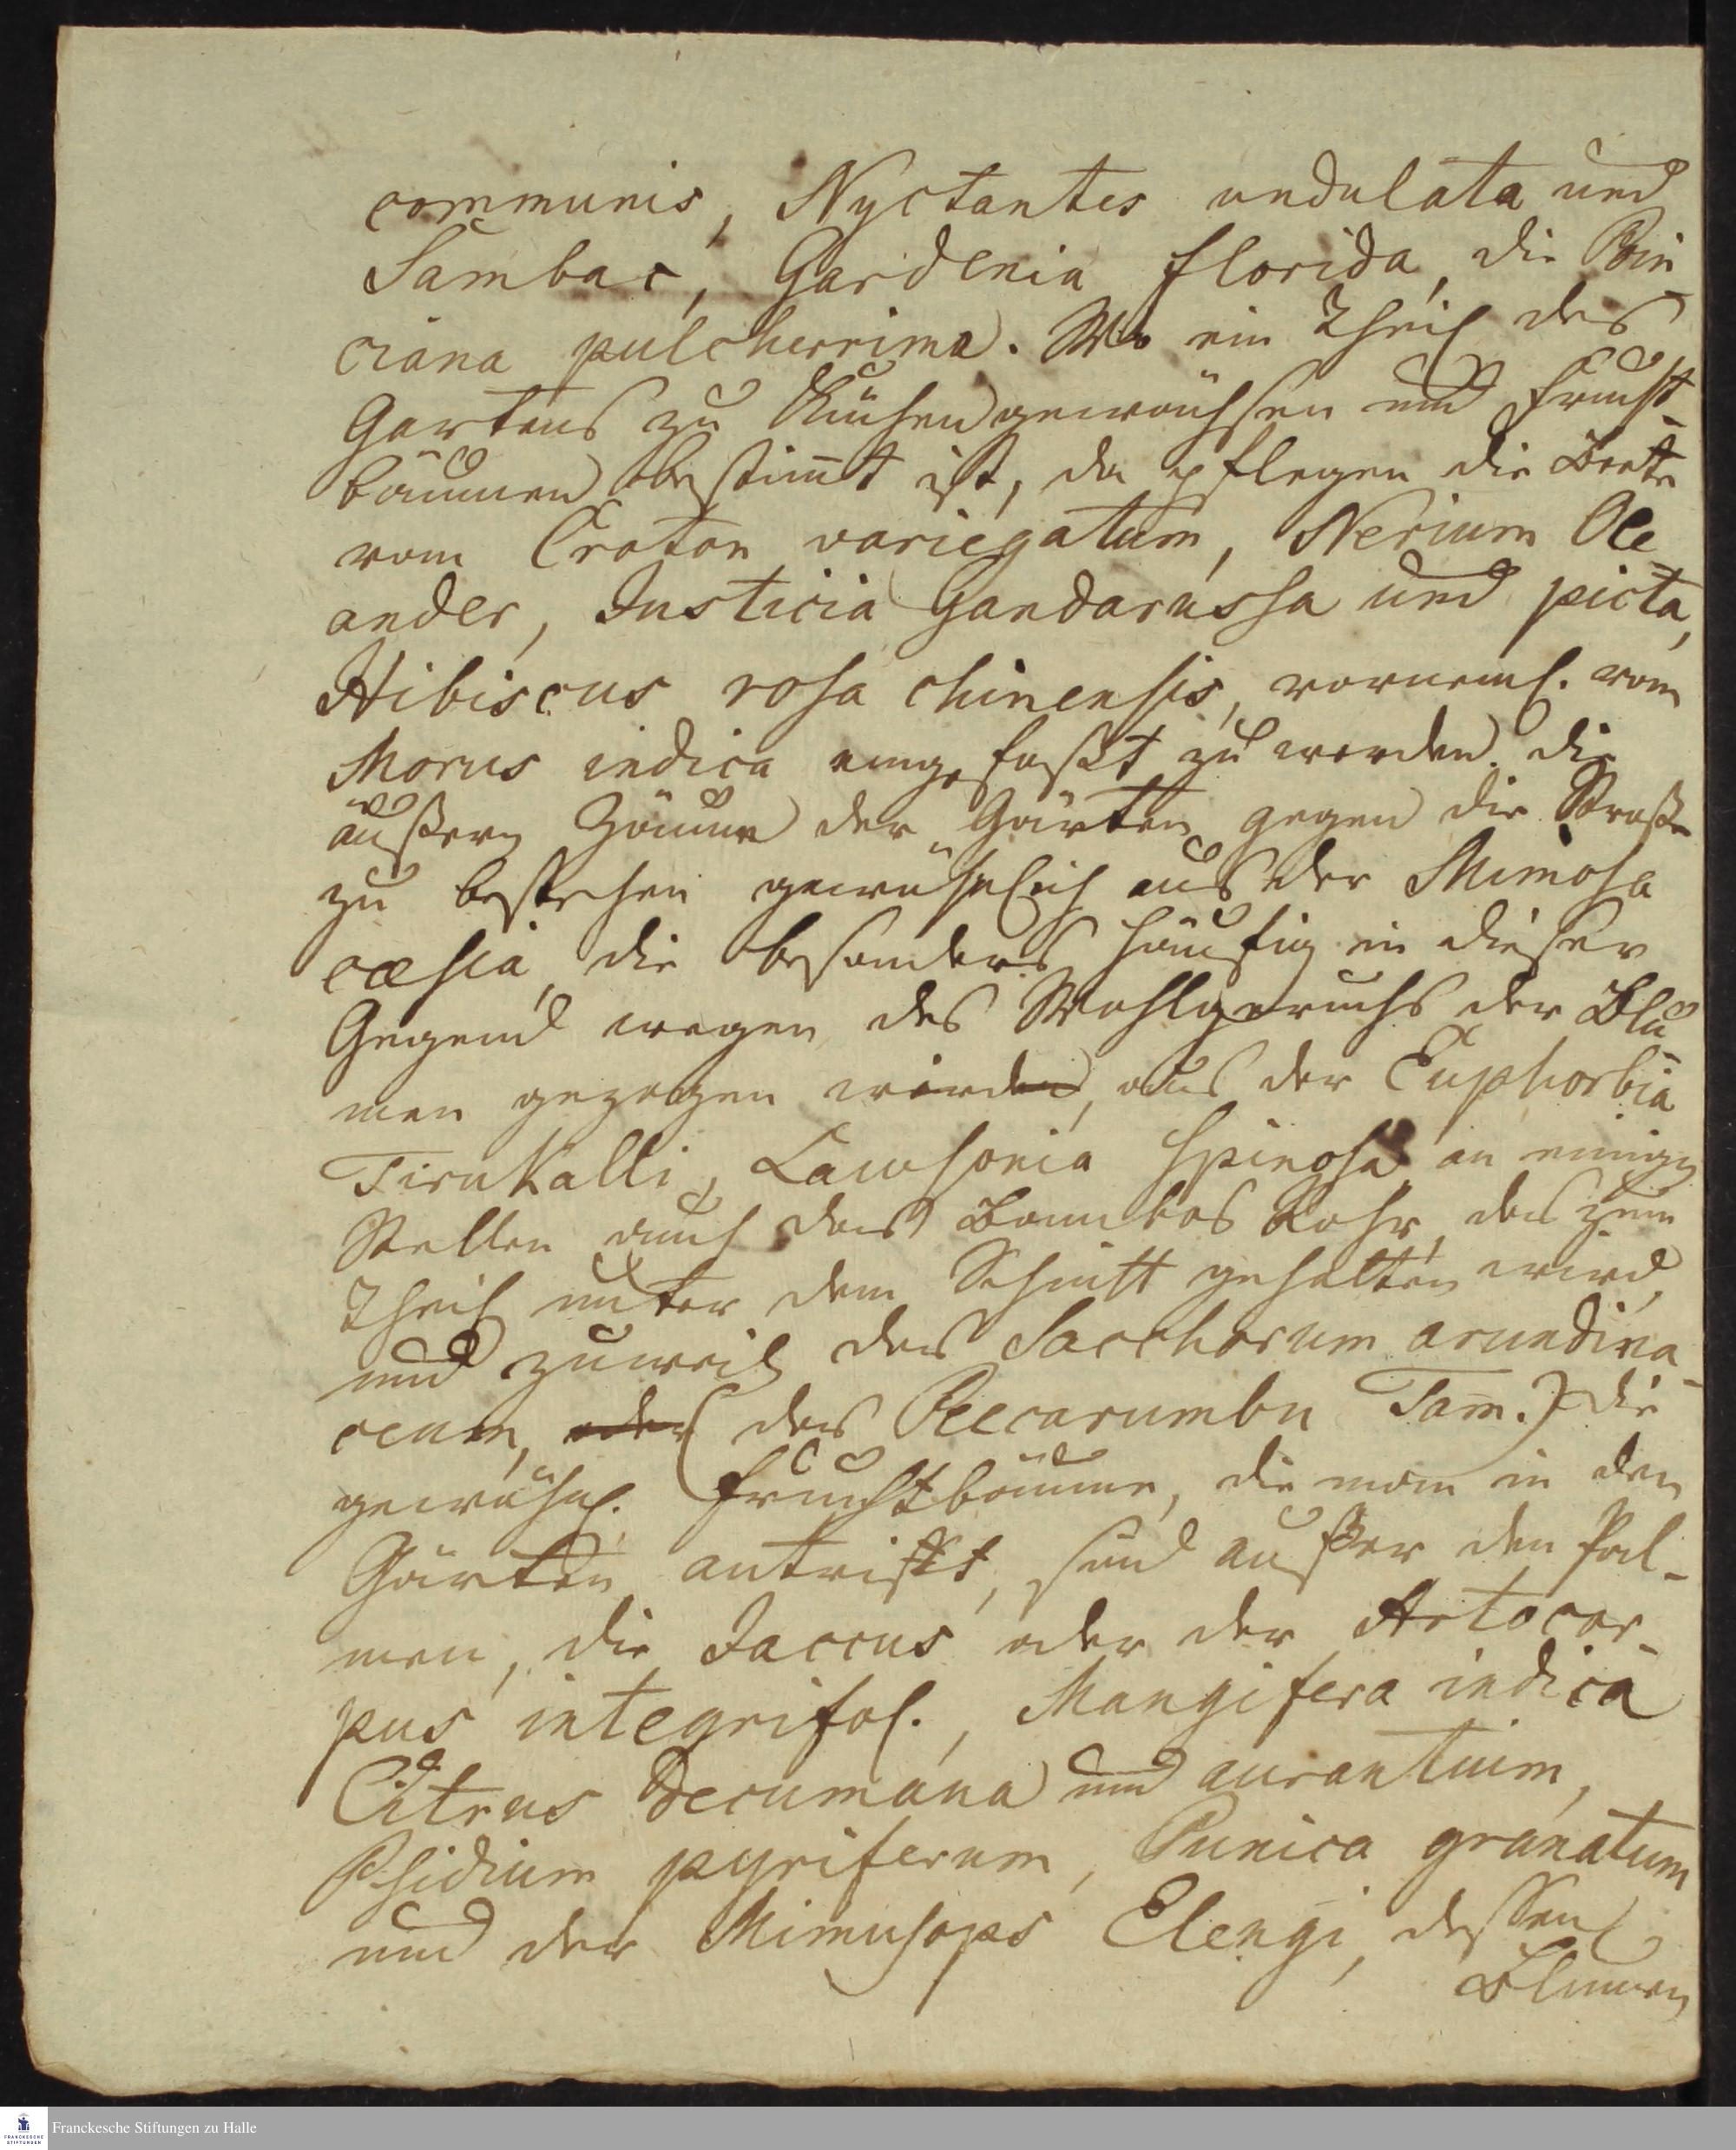 communis, Nyctantes undulata und
Sambac, Gardenia florida, die Poin-
ciana pulcherrima. Wo ein Theil des
Gartens zu Küchengewächsen und Frucht-
bäumen bestimt ist, da pflegen die Beete
vom Croton variegatum, Nerium Ole-
ander, Justicia Gandarussa und picta,
Hibiscus rosa chinensis, vorneml. vom
Morus indica eingefaßt zu werden. die
äußern Zäune der Gärten gegen die Straße
zu bestehen gewöhnlich aus der Mimosa
cæsia, die besonders häufig in dieser
Gegend wegen des Wohlgeruchs der Blu-
men gezogen wirden, aus der Euphorbia
Tirukalli, Lawsonia spinosa an einigen
Stellen auch das Bambos Rohr, das zum
Theil unter dem Schnitt gehalten wird,
und zuweil das Saccharum arundina-
ceum, oder (das Peecarumbu Tam.) die
gewöhnl. Fruchtbäume, die man in den
Gärten antrifft, sind außer den Pal-
men, die Jaccus oder der Artocar-
pus integrifol., Mangifera indica
Citrus Decumana und aurantium,
Psidium pyriferum, Punica granatum
und der Mimusops Elengi, dessen
Blumen
Franckesche Stiftungen zu Halle
FRANCKESCHE
STIFTUNGEN